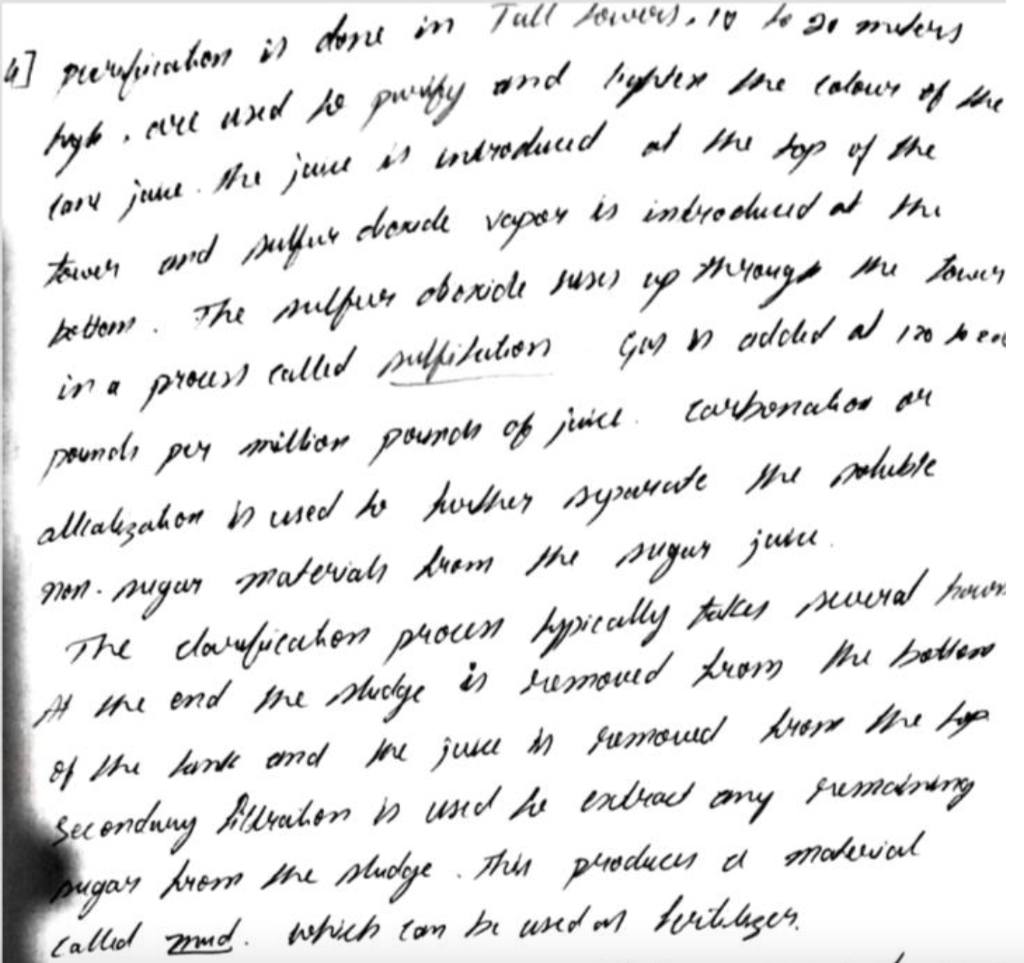 4] purification is done in Tall towers. 10 to 20 meters
high. are used to purify and lighten the colour of the
cane juice. the juice is introduced at the top of the
tower and sulfur dioxide vapor is introduced at the
bottom. The sulfur dioxide rises up through the tower
in a process called sulfitation Gas is added at 120 to
pounds per million pounds of juice. carbonation or
alkalization is used to further separate the soluble
non-sugar materials from the sugar juice.
The clarification process typically takes several hours
At the end the sludge is removed from the bottom
of the tank and the juice is removed from the top
Secondary filtration is used to extract any remaining
sugar from the sludge. this produces a material
called mud. which can be used as fertilizer.